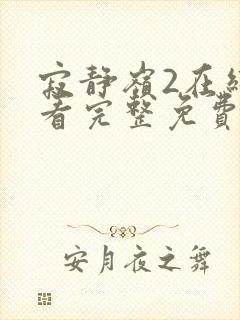 寂静嶺2在
看完整免費
安月夜之舞